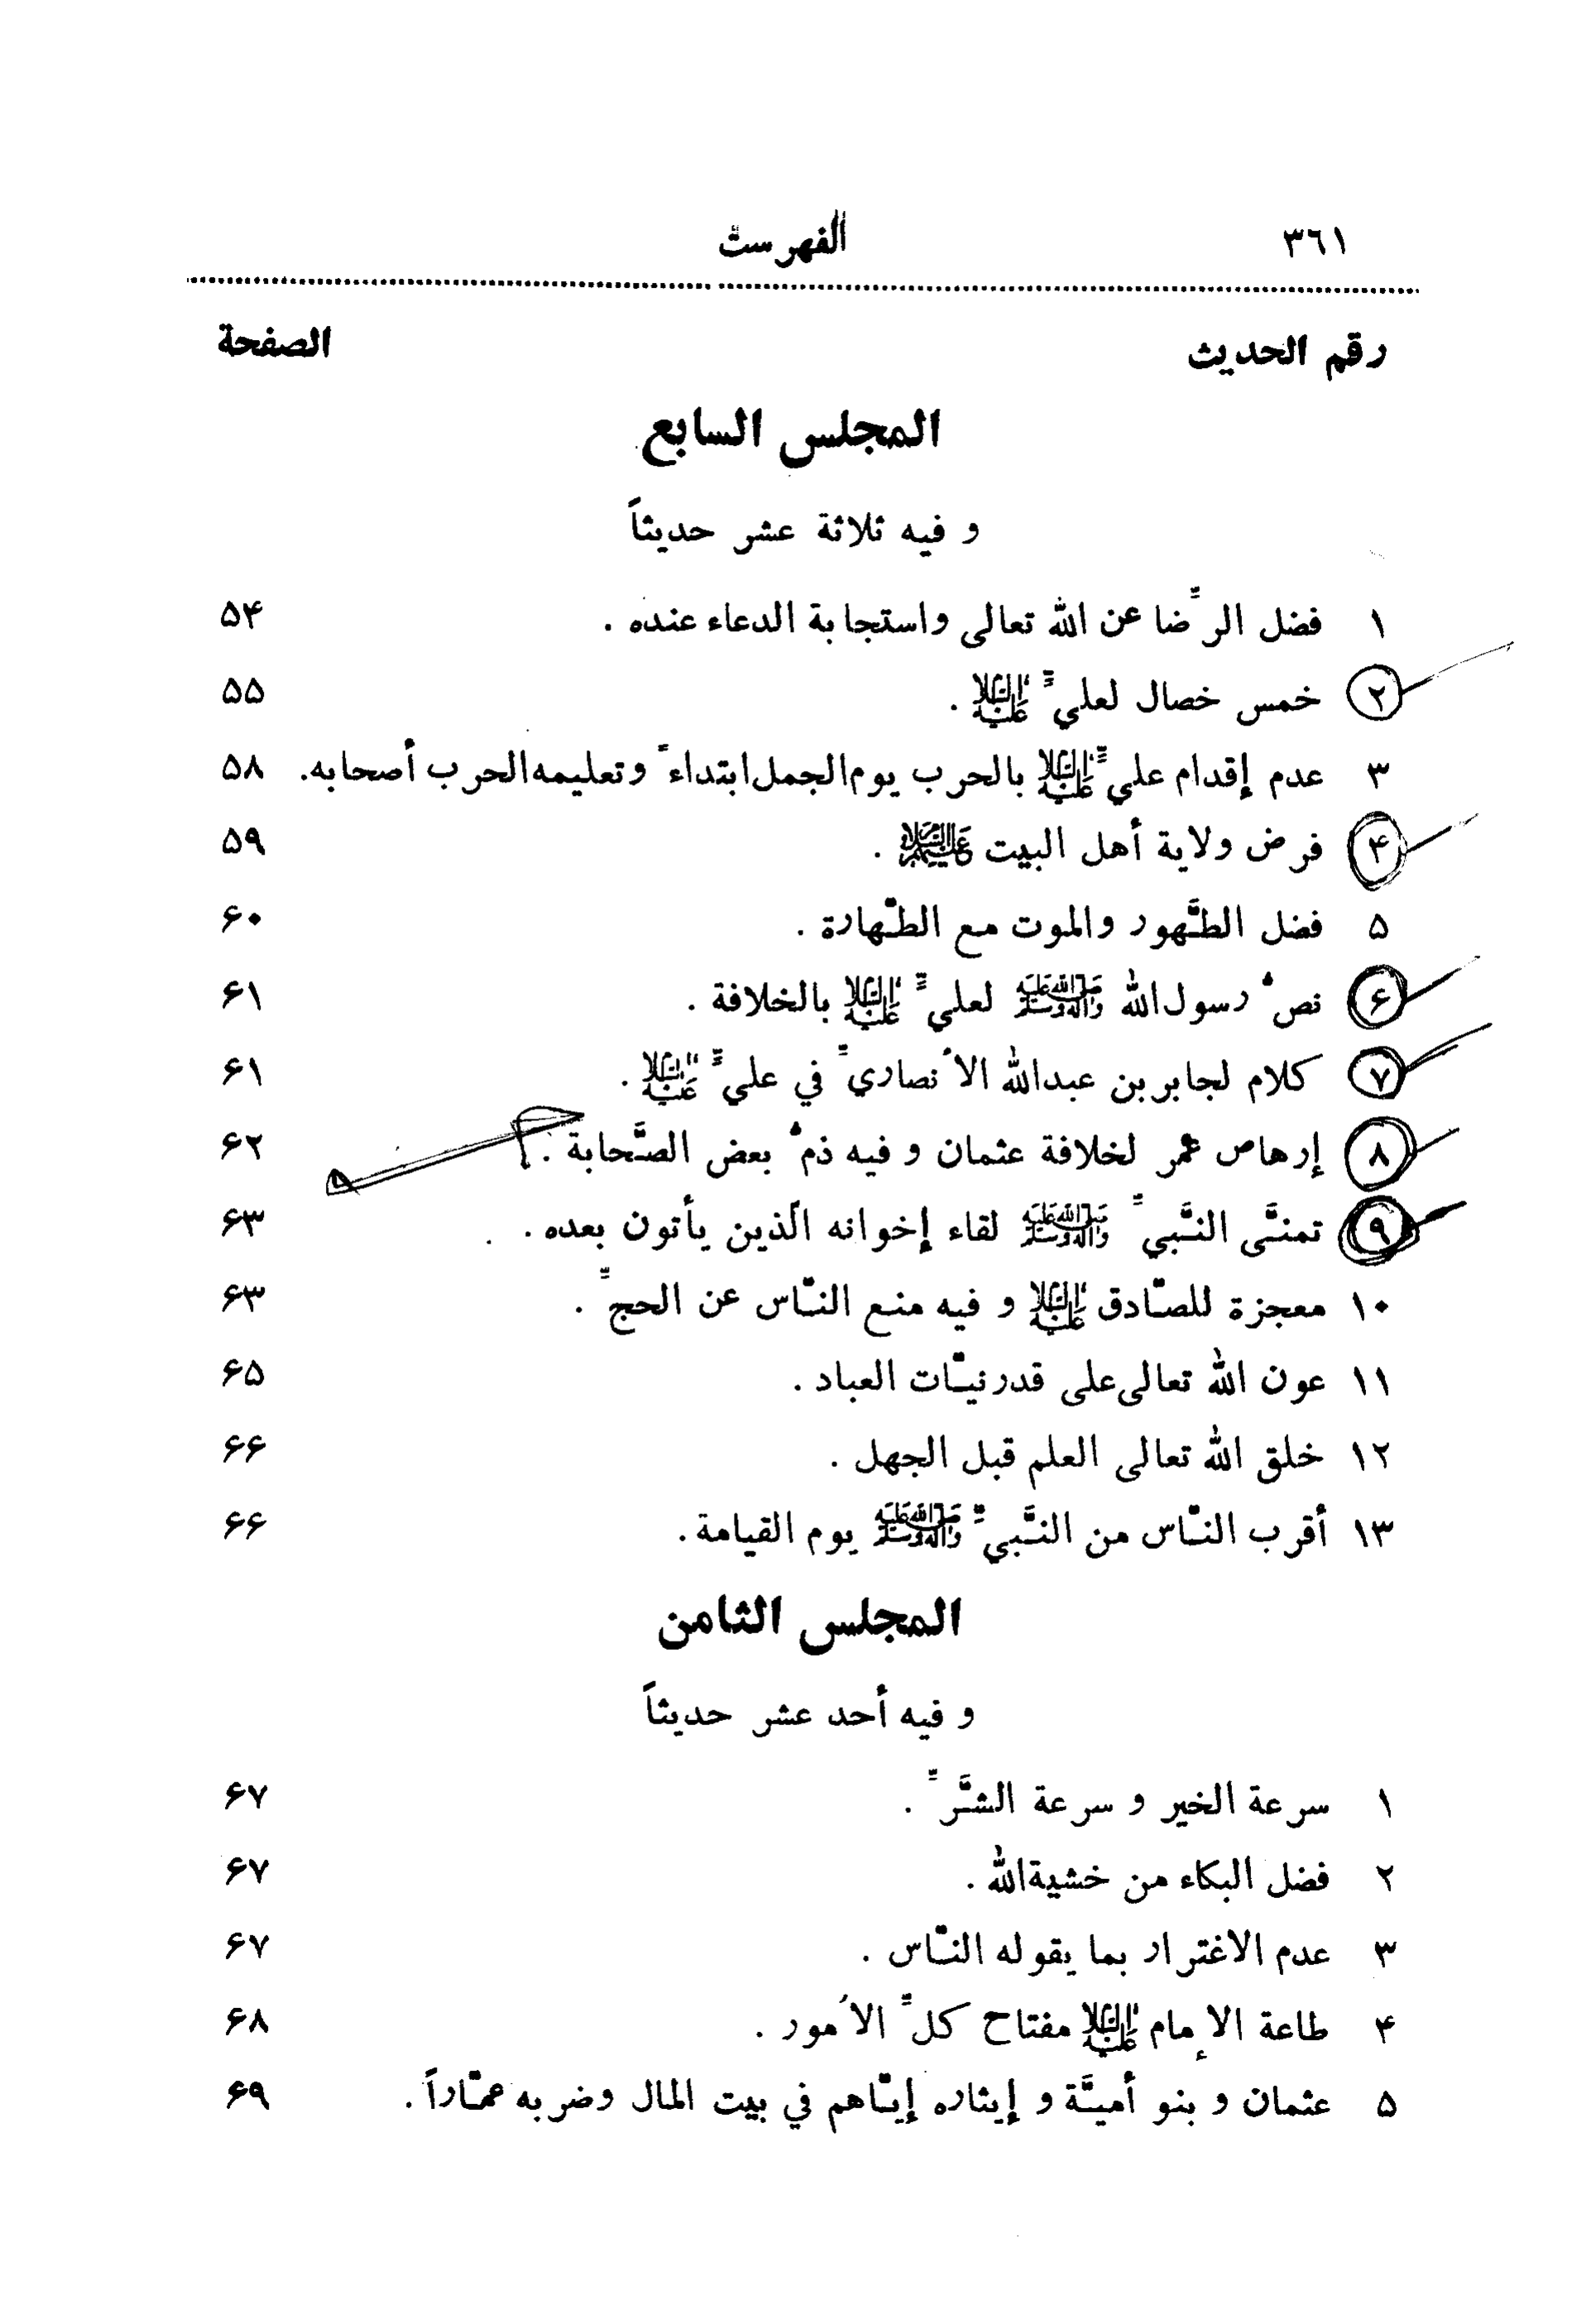 ٣٦١ الفهرست
رقم الحديث الصفحة
المجلس السابع
و فيه ثلاثة عشر حديثاً
١ فضل الرِّضا عن الله تعالى واستجابة الدعاء عنده . ۵۴
٢ خمس خصال لعليٍّ عليه السلام . ۵۵
٣ عدم إقدام عليٍّ عليه السلام بالحرب يوم الجمل ابتداءً وتعليمه الحرب أصحابه. ۵٨
۴ فرض ولاية أهل البيت عليهم السلام . ۵٩
۵ فضل الطَّهور والموت مع الطّهارة . ۶٠
۶ نصُّ رسول الله صلى الله عليه وآله وسلم لعليٍّ عليه السلام بالخلافة . ۶١
٧ كلام لجابر بن عبدالله الأنصاريِّ في عليٍّ عليه السلام . ۶١
٨ إرهاص عمر لخلافة عثمان و فيه ذمُّ بعض الصَّحابة . ۶٢
٩ تمنَّى النَّبيِّ صلى الله عليه وآله وسلم لقاء إخوانه الّذين يأتون بعده . ۶٣
١٠ معجزة للصّادق عليه السلام و فيه منع النّاس عن الحجِّ . ۶٣
١١ عون الله تعالى على قدر نيّات العباد . ۶۵
١٢ خلق الله تعالى العلم قبل الجهل . ۶۶
١٣ أقرب النّاس من النَّبيِّ صلى الله عليه وآله وسلم يوم القيامة . ۶۶
المجلس الثامن
و فيه أحد عشر حديثاً
١ سرعة الخير و سرعة الشَّرِّ . ۶٧
٢ فضل البكاء من خشية الله . ۶٧
٣ عدم الاغترار بما يقوله النّاس . ۶٧
۴ طاعة الإمام عليه السلام مفتاح كلِّ الأمور . ۶٨
۵ عثمان و بنو أميَّة و إيثاره إيّاهم في بيت المال وضربه عمّاراً . ۶٩